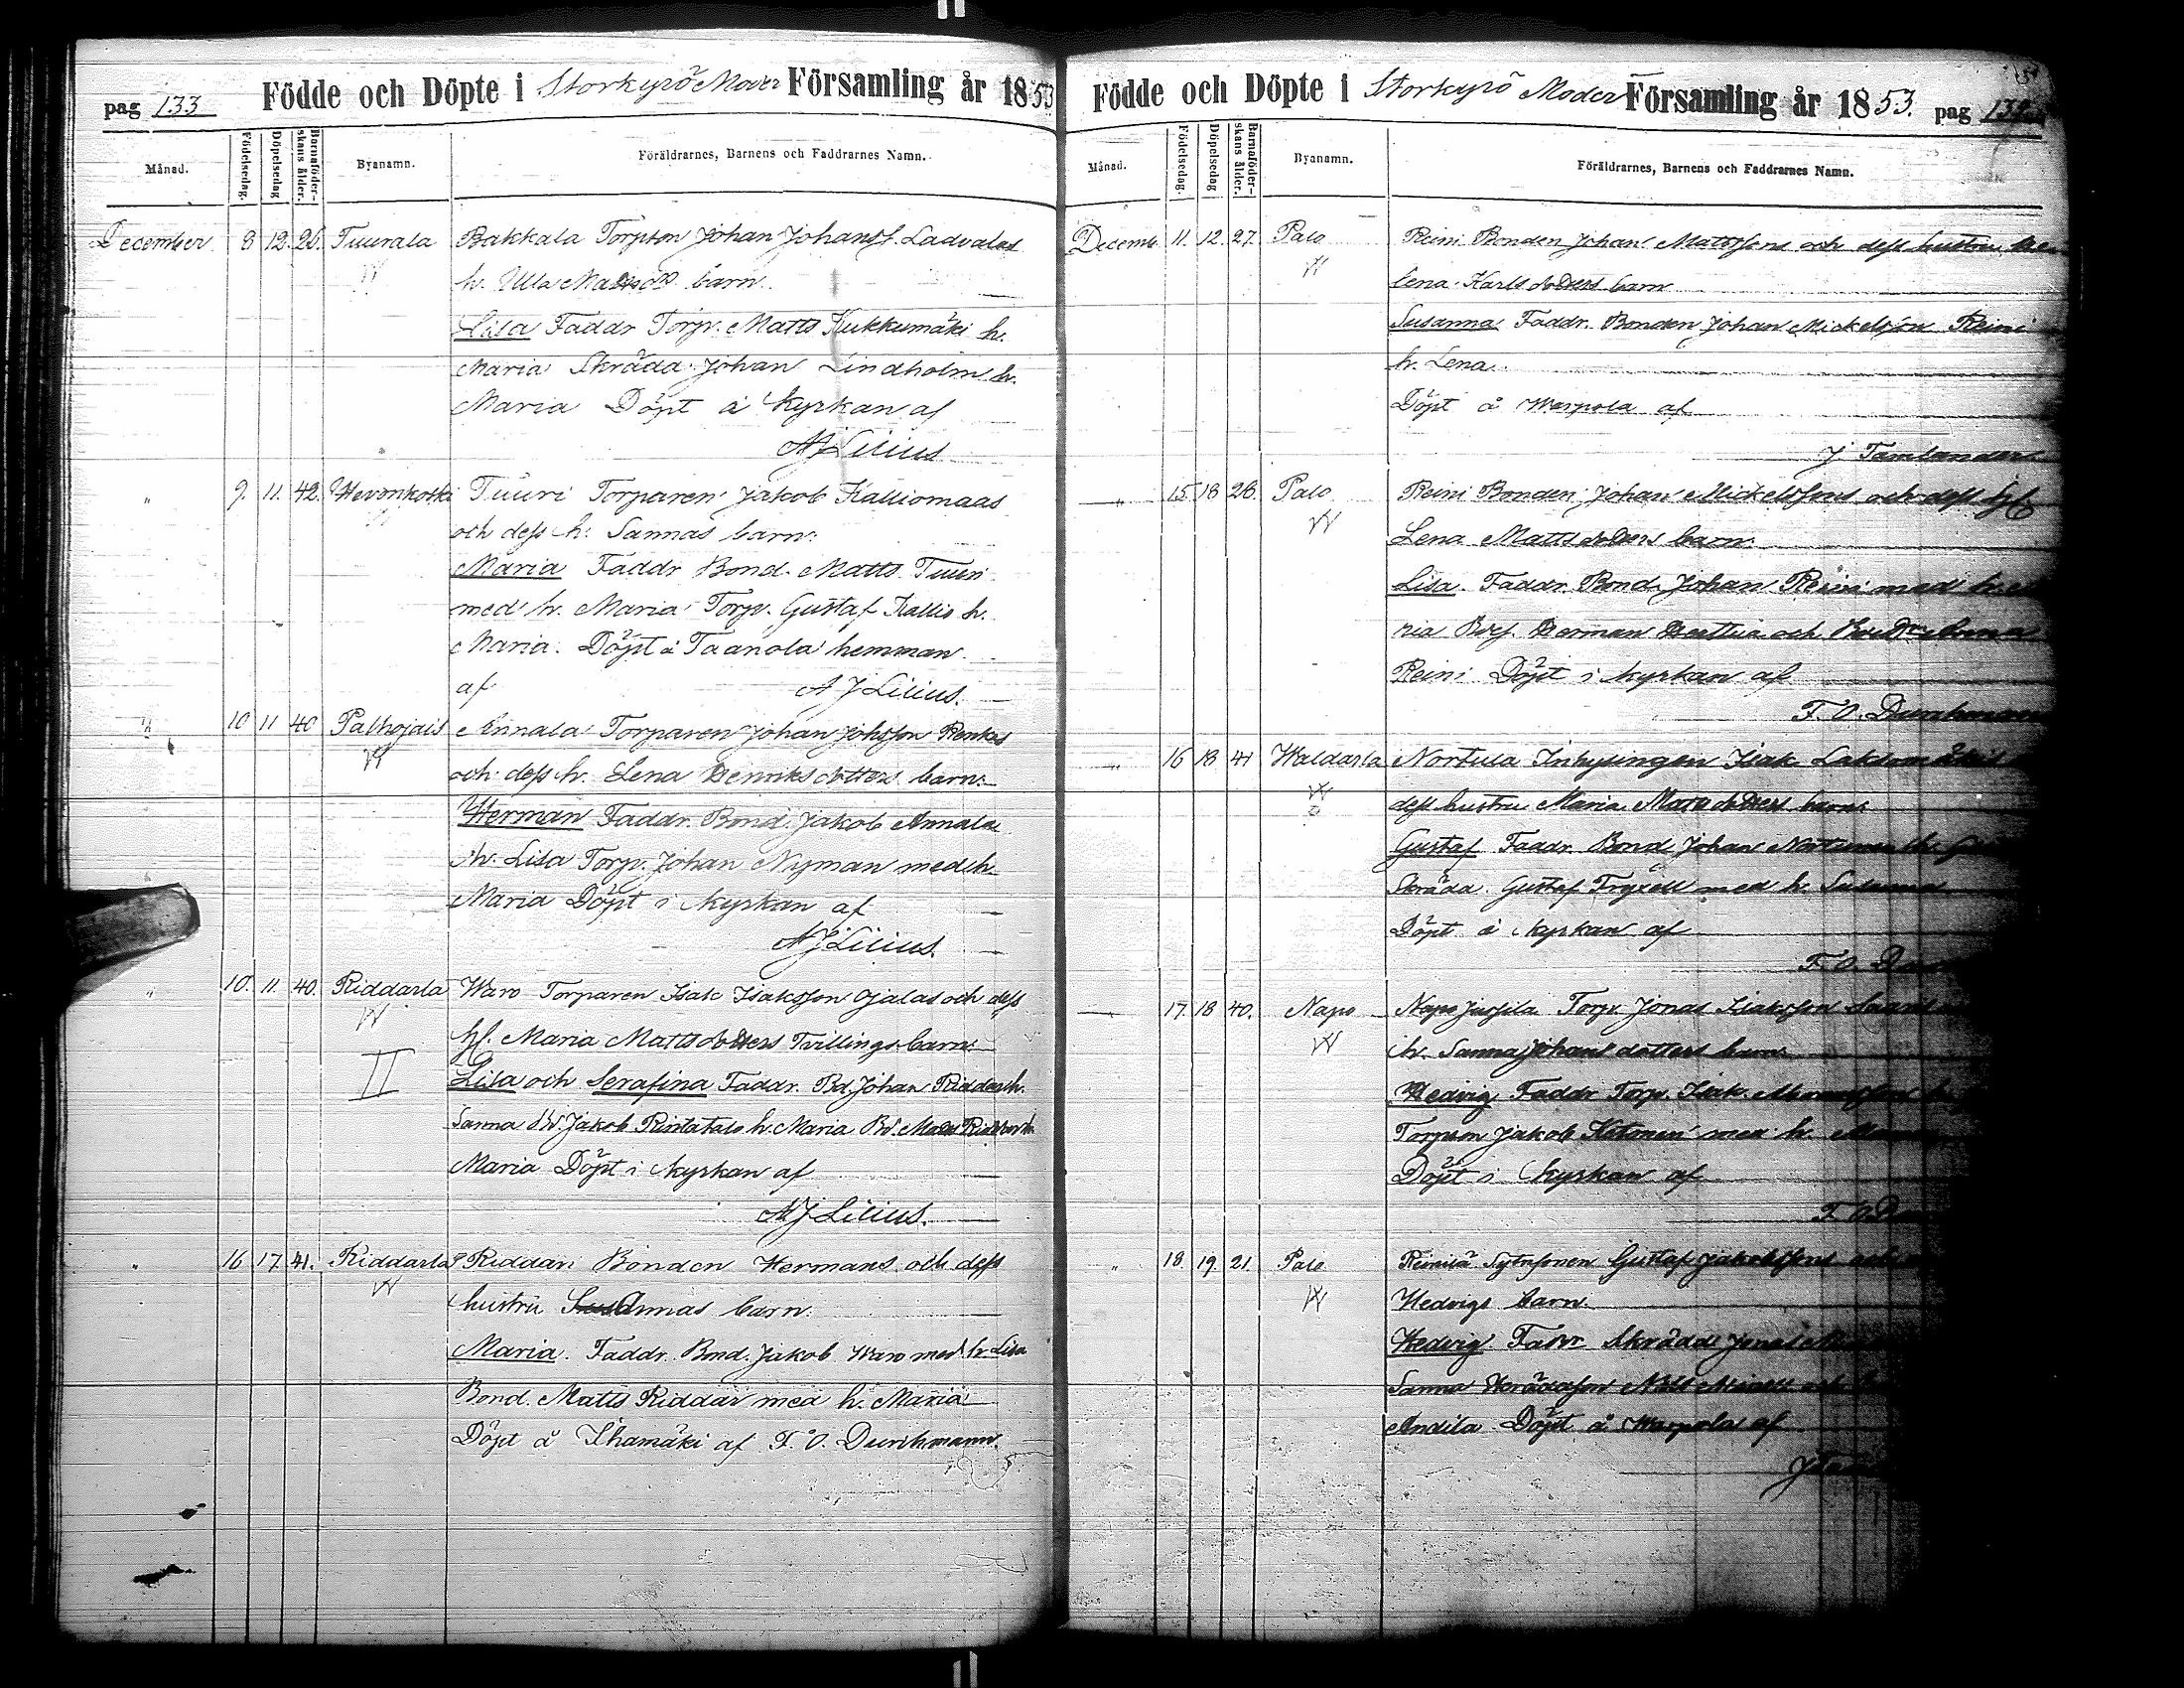 pag 133 Födde och Döpte i Storkyrö Moder Församling år 1853
Månad. Födelsedag. Döpelsedag Barnaföderskans ålder. Byanamn. Föräldrarnes, Barnens och Faddrarnes Namn.
December 8 12 26. Tuurala Bakkala Torpson Johan Johanss. Ladvalas
h. Ulla Mattsd barn.
Lisa Faddr Torp. Matts Kukkumäki h.
Maria Skrädd. Johan Lindholm h.
Maria Döpt å kyrkan af
AJ Lilius
" 9. 11. 42. Hevonkoski Tuuri Torparen Jakob Kalliomaas
och dess h. Sannas barn.
Maria Faddr Bond. Matts Tuuri
med h. Maria Torp. Gustaf Kallio h.
Maria. Döpt å Taanola hemman
af A J Lilius.
" 10 11 40 Palhojais Annala Torparen Johan Johsson Renkos
och dess h. Lena Henriksdotters barn.
Herman Faddr. Bond. Jakob Annala
h. Lisa Torp. Johan Nyman med h.
Maria Döpt i kyrkan af
AJ Lilius.
" 10. 11. 40. Riddarla Waro Torparen Isak Isaksson Ojalas och dess
W
II
h. Maria Mattsdotters Tvillings barn.
Lisa och Serafina Faddr. Bd. Johan Riddar h.
Sanna Bd. Jakob Rintatalo h. Maria Bd. Matts Riddar h.
Maria Döpt i kyrkan af
AJ Lilius.
" 16 17. 41. Riddarla Riddari Bonden Hermans och dess
W
hustru Annas barn.
Maria. Faddr. Bond. Jakob Waro med h. Lisa
Bond. Matts Riddar med h. Maria
Döpt å Ihamäki af F. O. Durchmann.
Födde och Döpte i Storkyrö Moder Församling år 1853. pag
Månad. Födelsedag. Döpelsedag Barnaföderskans ålder. Byanamn. Föräldrarnes, Barnens och Faddrarnes Namn.
Decemb. 11. 12. 27. Palo Reini Bonden Johan Mattssons och dess hustru
lena Karlsdotters barn
Susanna Faddr. Bonden Johan Mickelson Reini
h. Lena.
Döpt å Warpola af
J Tamlander
" 15 18 26. Palo Reini Bonden Johan Mickelssons och dess
W
Lena Mattsdotters barn.
Lisa. Faddr. Bond. Johan Reini med h.
ria Herman Herttua och
Reini Döpt i kyrkan af
F. O. Durchmann
" 16 18 41 Waldarla Nortula Inhysingen Isak
W
dess hustru Maria Mattsdotters barn.
Gustaf Faddr. Bond Johan h.
Skrädd. Gustaf Fryxell med h. Susanna
Döpt i kyrkan af
F. O.
17. 18 40. Napo Napo Jussila Torp. Jonas Isaksson
W
h. Sanna Johansdotters barn
Hedvig Faddr Torp. Isak
Torpson Jakob Ketonen med h.
Döpt i kyrkan af
F. O.
" 18. 19. 21. Palo Reinilä Sytnssonen Gustaf Jakobssons och
W
Hedvigs barn.
Hedvig. Faddr Skrädd. Jonas
Sanna
Andila Döpt å Warpola af